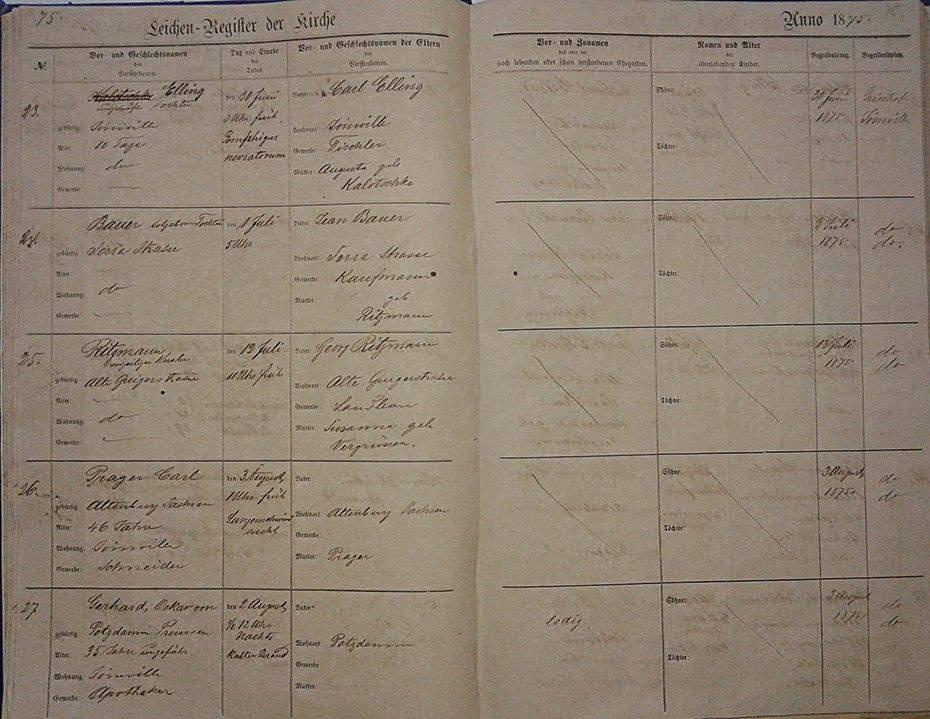 75.
Leichen-Register der Kirche
Anno 1875.
№
Vor- und Geschlechtsnamen
des
Verstorbenen.
Tag und Stunde
des
Todes.
Vor- und Geschlechtsnamen der Eltern
des
Verstorbenen.
Vor- und Zunamen
des oder der
noch lebenden oder schon verstorbenen Ehegatten.
Namen und Alter
der
überlebenden Kinder.
Begräbnißtag.
Begräbnißplatz.
23.
Kalotschke Elling
ungetaufte Tochter
gebürtig: Joinville
Alter: 10 Tage
Wohnung: do
Gewerbe:
den 30 Juni
3 Uhr früh.
Pomphigus
neonatorum
Vater: Carl Elling
Wohnort: Joinville
Gewerbe: Tischler
Mutter: Augusta geb
Kalotschke
Söhne:
Töchter:
30 Juni
1875
Friedhof
Joinville
24.
Bauer todgeborne Tochter
gebürtig: Serra Strasse
Alter
Wohnung: do
Gewerbe:
den 1 Juli
5 Uhr
Vater: Jean Bauer
Wohnort: Serra Strasse
Gewerbe: Kaufmann
Mutter: geb
Ritzmann
Söhne:
Töchter:
Juli
1875
do
do.
25.
Ritzmann
unzeitiger Knabe
gebürtig: Alte Guigerstrasse
Alter:
Wohnung: do
Gewerbe:
den 13 Juli
11 Uhr früh
Vater: Georg Ritzmann
Wohnort: Alte Guigerstrasse
Gewerbe: Landman
Mutter: Susanna geb
Söhne:
Töchter:
13 Juli
1875
do
do
26.
Prager Carl
gebürtig: Altenburg Sachsen
Alter: 46 Jahre
Wohnung: Joinville
Gewerbe: Schneider
den 3 August,
1 Uhr früh
Lungenschwind
sucht
Vater:
Wohnort: Altenburg Sachsen
Gewerbe:
Mutter: Prager
Söhne:
Töchter:
3 August
1875
do
do
27.
Gerhard, Oskar von
gebürtig: Potzdamm Preussen
Alter: 35 Jahre ungefähr
Wohnung: Joinville
Gewerbe: Apotheker
den 2 August,
½ 12 Uhr
Nachts
Kalter Brand
Vater:
Wohnort: Potzdamm
Gewerbe:
Mutter:
ledig
Söhne:
Töchter:
3 August
1875
do
do